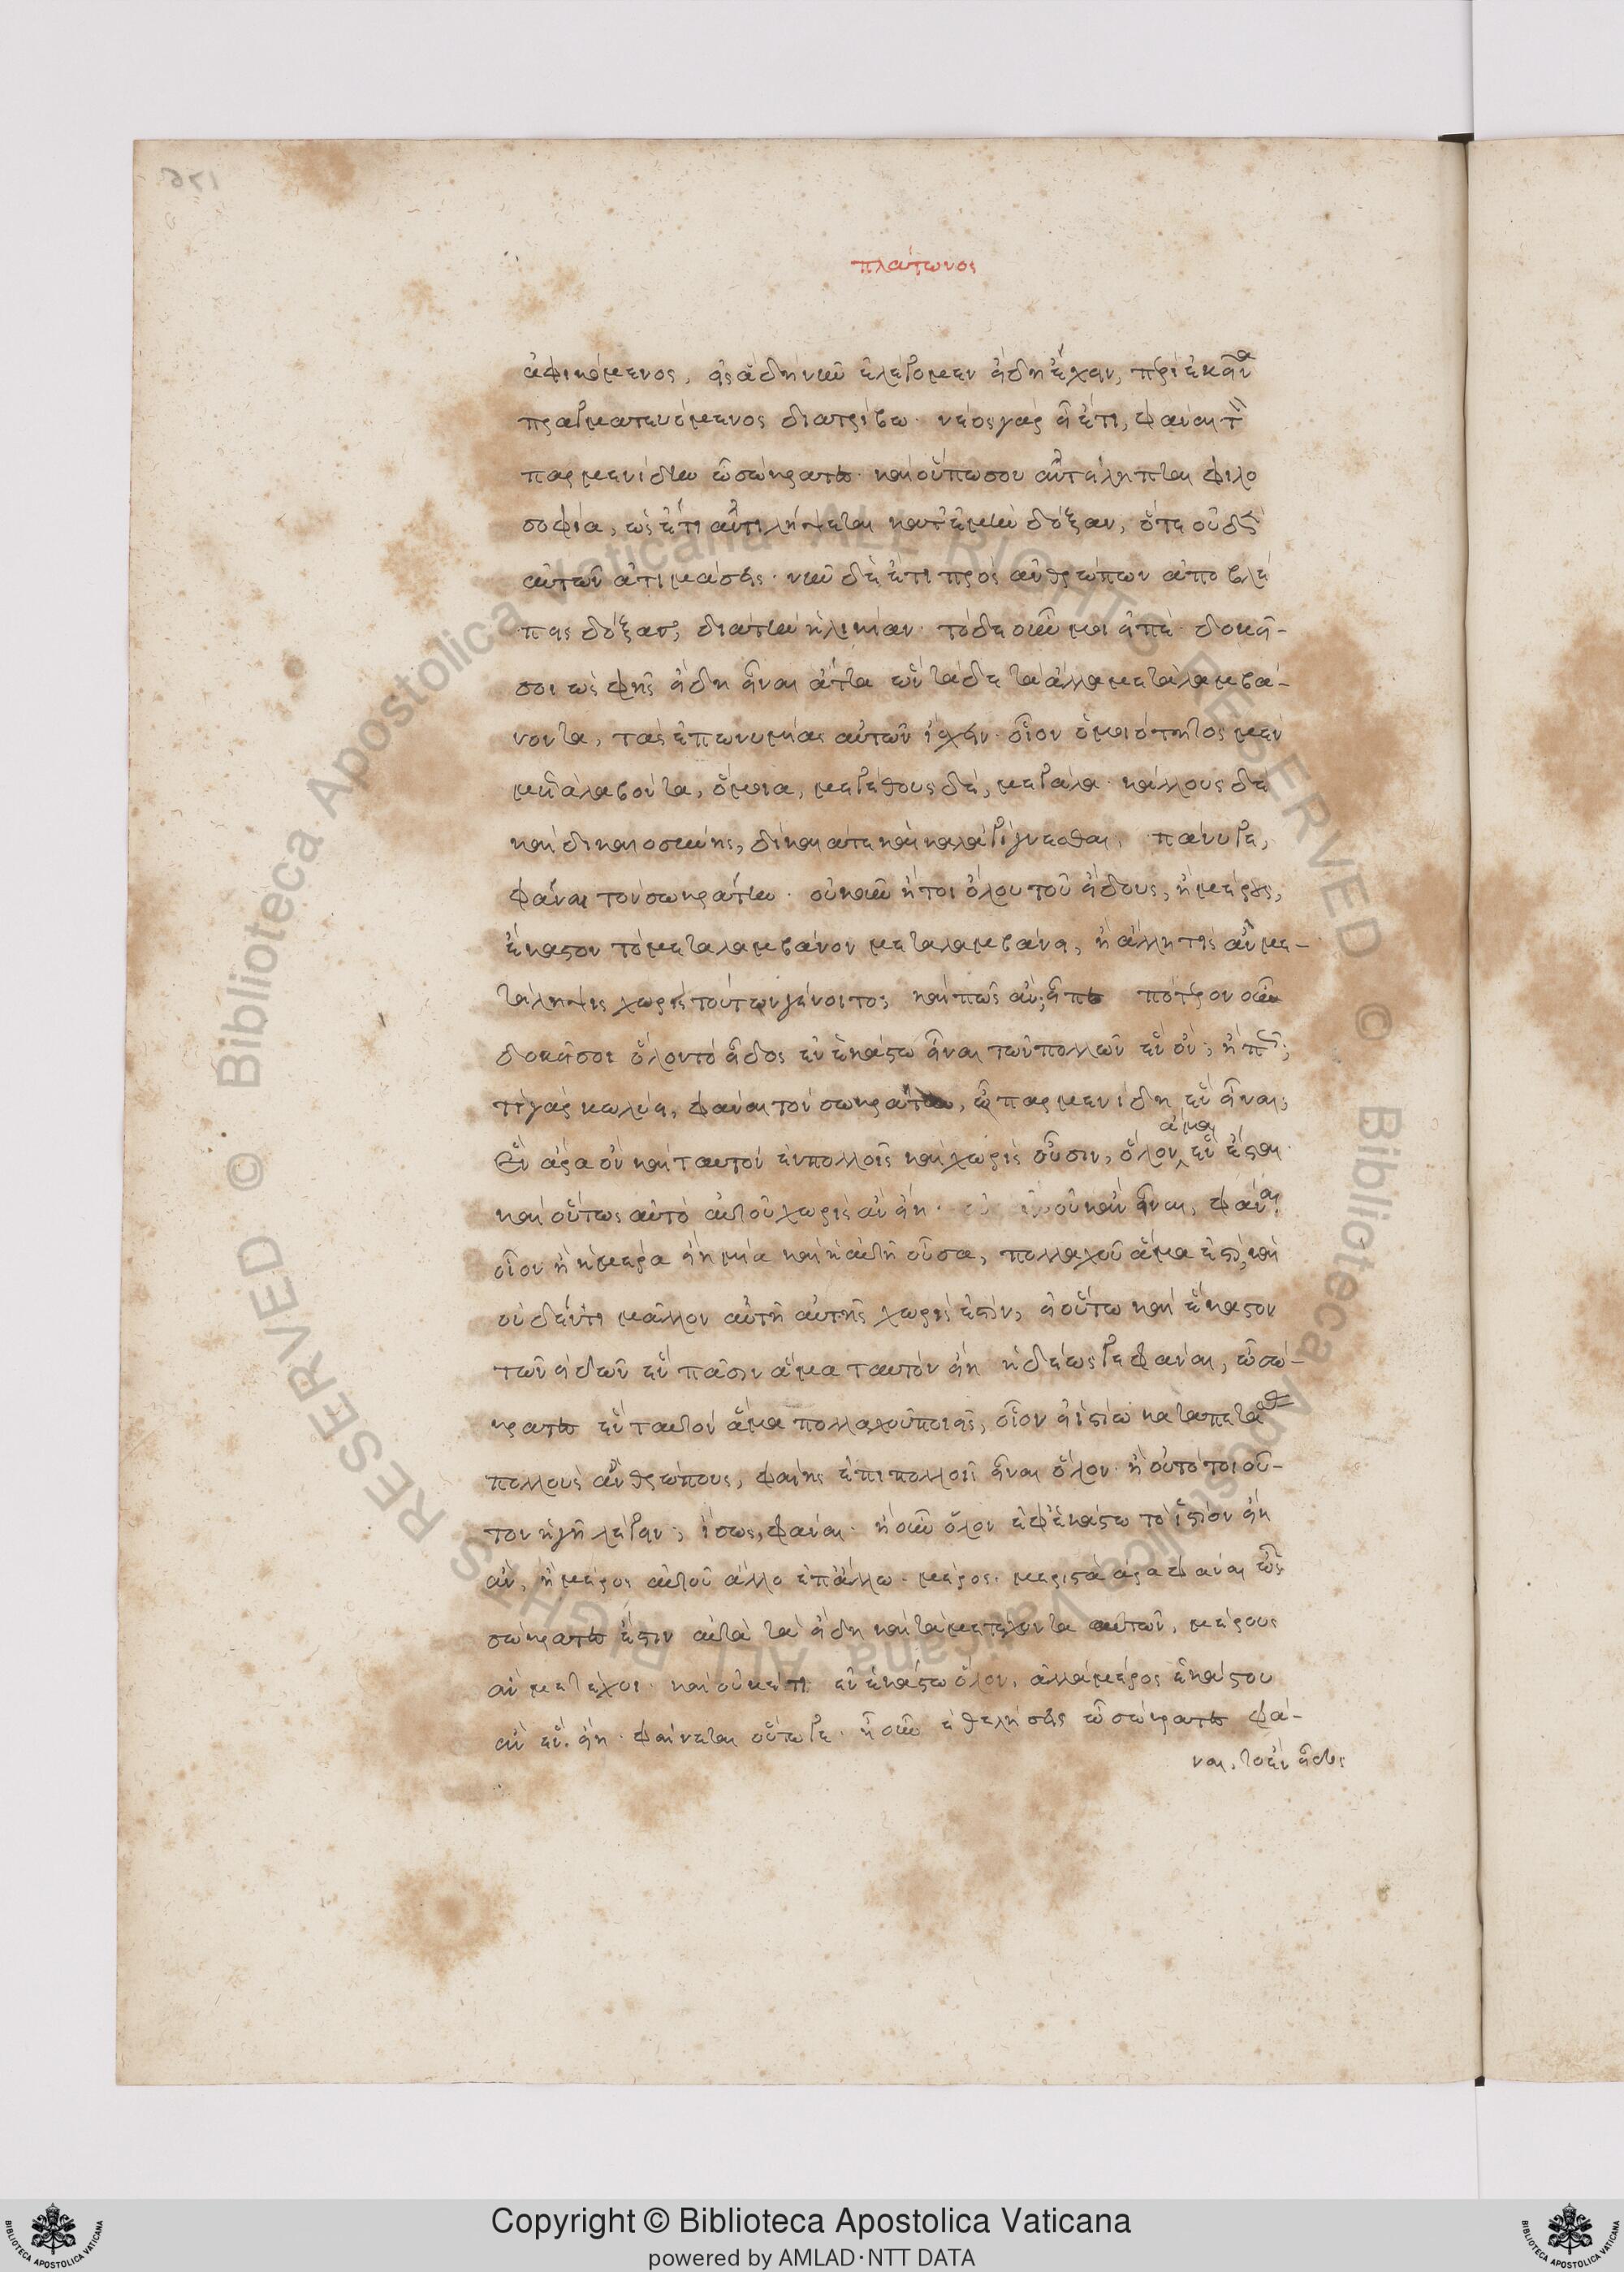 πλάτωνος
ἀφικόμενος, εἰς ἃ δὴ νῦν ἐλέγομεν εἴδη ἔχειν, περὶ ἐκεῖνα
πραγματευόμενος διατρίβω· νέος γὰρ εἶ ἔτι, φάναι τὸν
παρμενίδην ὦ σώκρατες· καὶ οὔπω σου ἀντείληπται φιλο
σοφία, ὡς ἔτι ἀντιλήψεται κατ' ἐμὴν δόξαν, ὅτε οὐδὲν
αὐτῶν ἀτιμάσεις· νῦν δὲ ἔτι πρὸς ἀνθρώπων ἀποβλέ
πεις δόξας, διὰ τὴν ἡλικίαν· τόδε οὖν μοι εἰπέ· δοκεῖ
σοι ὡς φῂς εἴδη εἶναι ἄττα ὧν τάδε τὰ ἄλλα μεταλαμβά-
νοντα, τὰς ἐπωνυμίας αὐτῶν ἴσχειν· οἷον ὁμοιότητος μὲν
μεταλαβόντα, ὅμοια, μεγέθους δὲ, μεγάλα· κάλλους δὲ
καὶ δικαιοσύνης, δίκαιά τε καὶ καλὰ γίγνεσθαι, πάνυ γε,
φάναι τὸν σωκράτην· οὐκοῦν ἤτοι ὅλου τοῦ εἴδους, ἢ μέρους,
ἕκαστον τὸ μεταλαμβάνον μεταλαμβάνει, ἢ ἄλλη τις ἂν με-
τάληψις χωρὶς τούτων γένοιτο; καὶ πῶς ἄν; εἶπε πότερον οὖν
δοκεῖ σοι ὅλον τὸ εἶδος ἐν ἑκάστω εἶναι τῶν πολλῶν ἓν ὄν; ἢ πῶς;
τί γὰρ κωλύει, φάναι τὸν σωκράτην, ὦ παρμενίδη ἓν εἶναι;
Ἓν ἄρα ὂν καὶ ταυτὸν ἐν πολλοῖς καὶ χωρὶς οὖσιν, ὅλον ἅμα ἓν ἔσται·
καὶ οὕτως αὐτὸ αὑτοῦ χωρὶς ἂν εἴη· οὐκ ἂν εἶναι, φάναι,
οἷον ἡ ἡμέρα εἴη μία καὶ ἡ αὐτὴ οὖσα, πολλαχοῦ ἅμα ἐστὶ, καὶ
οὐδέν τι μᾶλλον αὐτὴ αὑτῆς χωρίς ἐστιν, εἰ οὕτω καὶ ἕκαστον
τῶν εἰδῶν ἓν πᾶσιν ἅμα ταυτὸν εἴη ἡδέως γε φάναι, ὦ σώ-
κρατες ἓν ταυτὸν ἅμα πολλαχοῦ ποιεῖς, οἷον εἰ ἱστίω καταπετάσας
πολλοὺς ἀνθρώπους, φαίης ἐπὶ πολλοῖς εἶναι ὅλον· ἢ οὐ τὸ τοιοῦ-
τον ἡγῇ λέγειν; ἴσως, φάναι· ἦ οὖν ὅλον ἐφ' ἑκάστω τὸ ἱστίον εἴη
ἄν, ἢ μέρος αὐτοῦ ἄλλο ἐπ' ἄλλω· μέρος. μεριστὰ ἄρα φάναι ὦ
σώκρατες ἔστιν αὐτὰ τὰ εἴδη καὶ τὰ μετέχοντα αὐτῶν, μέρους
ἂν μετέχοι· καὶ οὐκέτι ἐν ἑκάστω ὅλον, ἀλλὰ μέρος ἑκάστου
ἂν ἓν εἴη· φαίνεται οὕτω γε· ἦ οὖν ἐθελήσεις ὦ σώκρατες φά-
ναι, τὸ ἓν εἶδος